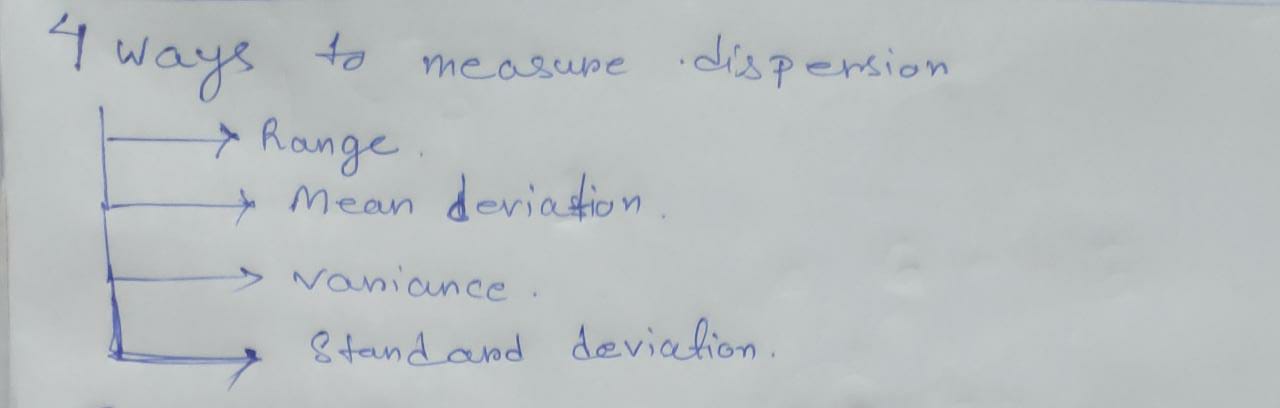 4 ways to measure dispersion
Range.
Mean deviation.
Variance.
Standard deviation.